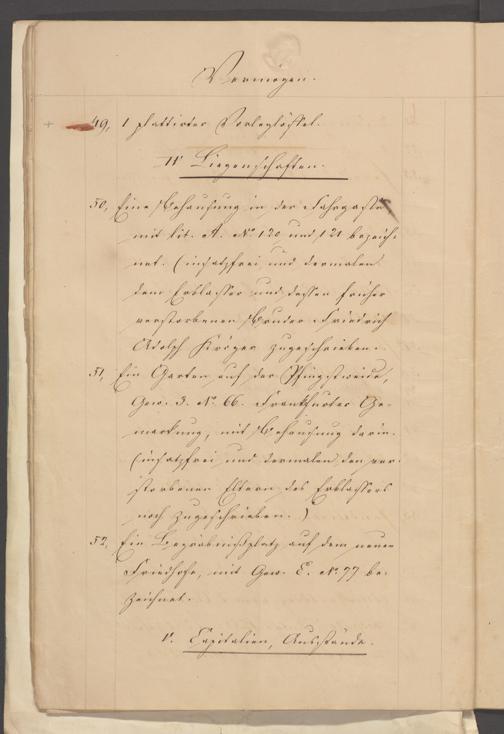 Vermögen.
49, 1 plattirter Vorleglöffel.
IV Liegenschaften.
50, Eine Behausung in der Fahrgasse
mit lit. A. No 120 und 121 bezeich-
net. (insatzfrei und dermalen
dem Erblasser und dessen früher
verstorbenen Bruder Friedrich
Adolph Kröger zugeschrieben.
51, Ein Garten auf der Pfingstweide,
Gew. 3. No 66. Frankfurter Ge-
markung, mit Behausung darin.
(insatzfrei und dermalen den ver-
storbenen Eltern des Erblassers
noch zugeschrieben.)
52, Ein Begräbnißplatz auf dem neuen
Friedhofe, mit Gew. E. No 77 be-
zeichnet.
V. Capitalien, Ausstände.